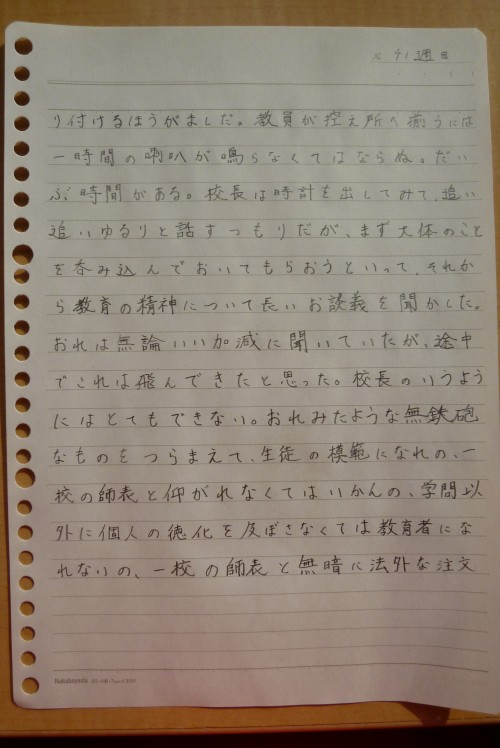 41週目
り付けるほうがましだ。教員が控え所へ揃うには
一時間の喇叭が鳴らなくてはならぬ。だい
ぶ時間がある。校長は時計を出してみて、追い
追いゆるりと話すつもりだが、まず大体のこと
を呑み込んでおいてもらおうといって、それか
ら教育の精神について長いお談義を聞かした。
おれは無論いい加減に聞いていたが、途中
でこれは飛んできたと思った。校長のいうよう
にはとてもできない。おれみたような無鉄砲
なものをつらまえて、生徒の模範になれの、一
校の師表と仰がれなくてはいかんの、学問以
外に個人の徳化を及ぼさなくては教育者にな
れないの、一校の師表と無暗に法外な注文
Nakabayashi